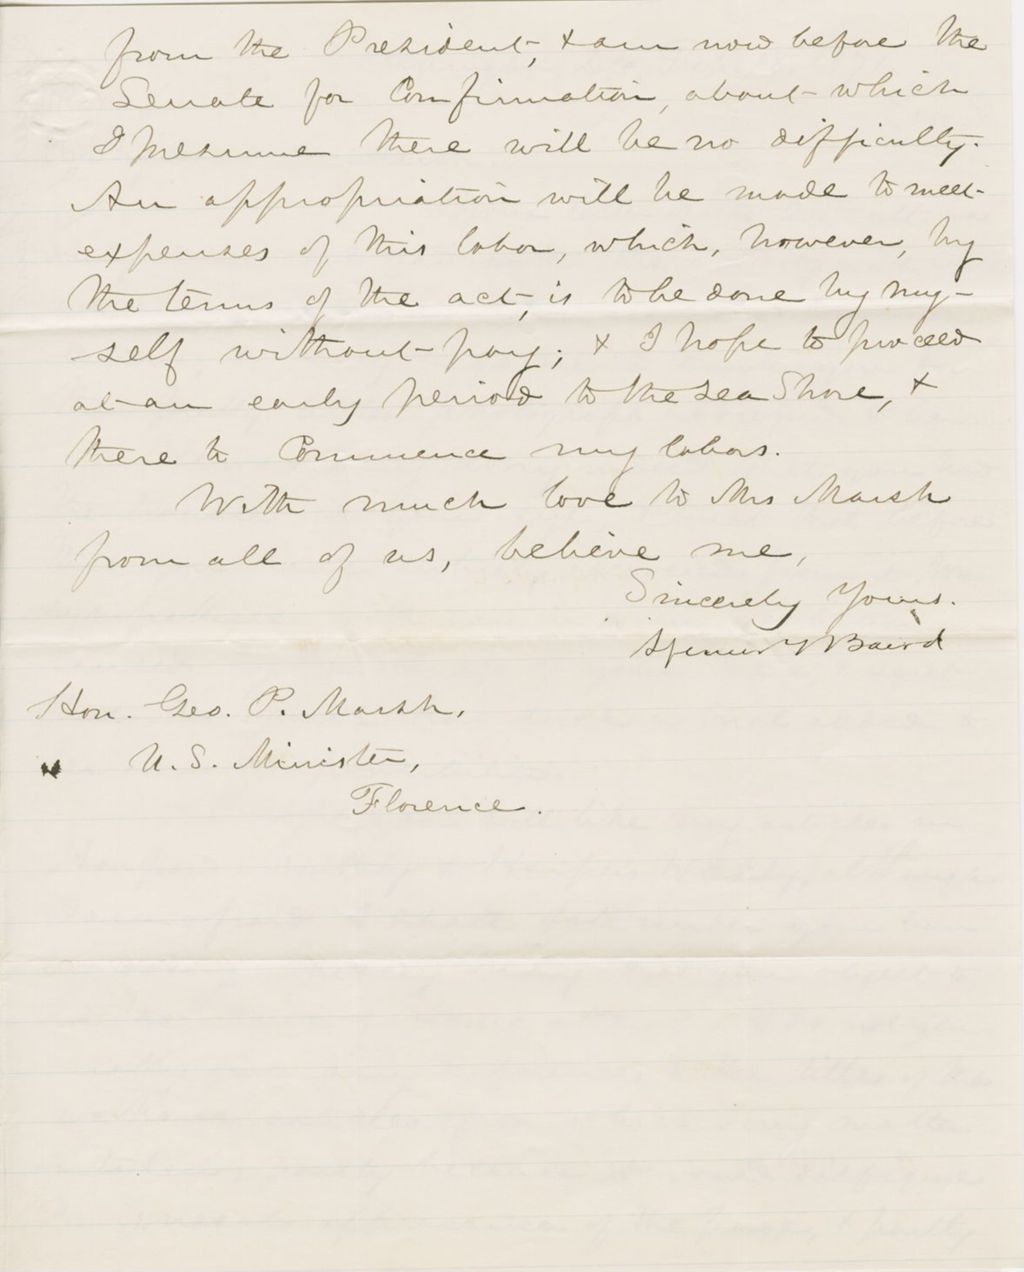 from the President, & am now before the
Senate for Confirmation, about which
I presume there will be no difficulty.
An appropriation will be made to meet
expenses of this labor, which, however, by
the terms of the act, is to be done by my-
self without pay; & I hope to proceed
at an early period to the sea Shore, &
there to Commence my labors.
With much love to Mrs Marsh
from all of us, believe me,
Sincerely Yours.
Spencer F Baird
Hon. Geo. P. Marsh,
U. S. Minister,
Florence.